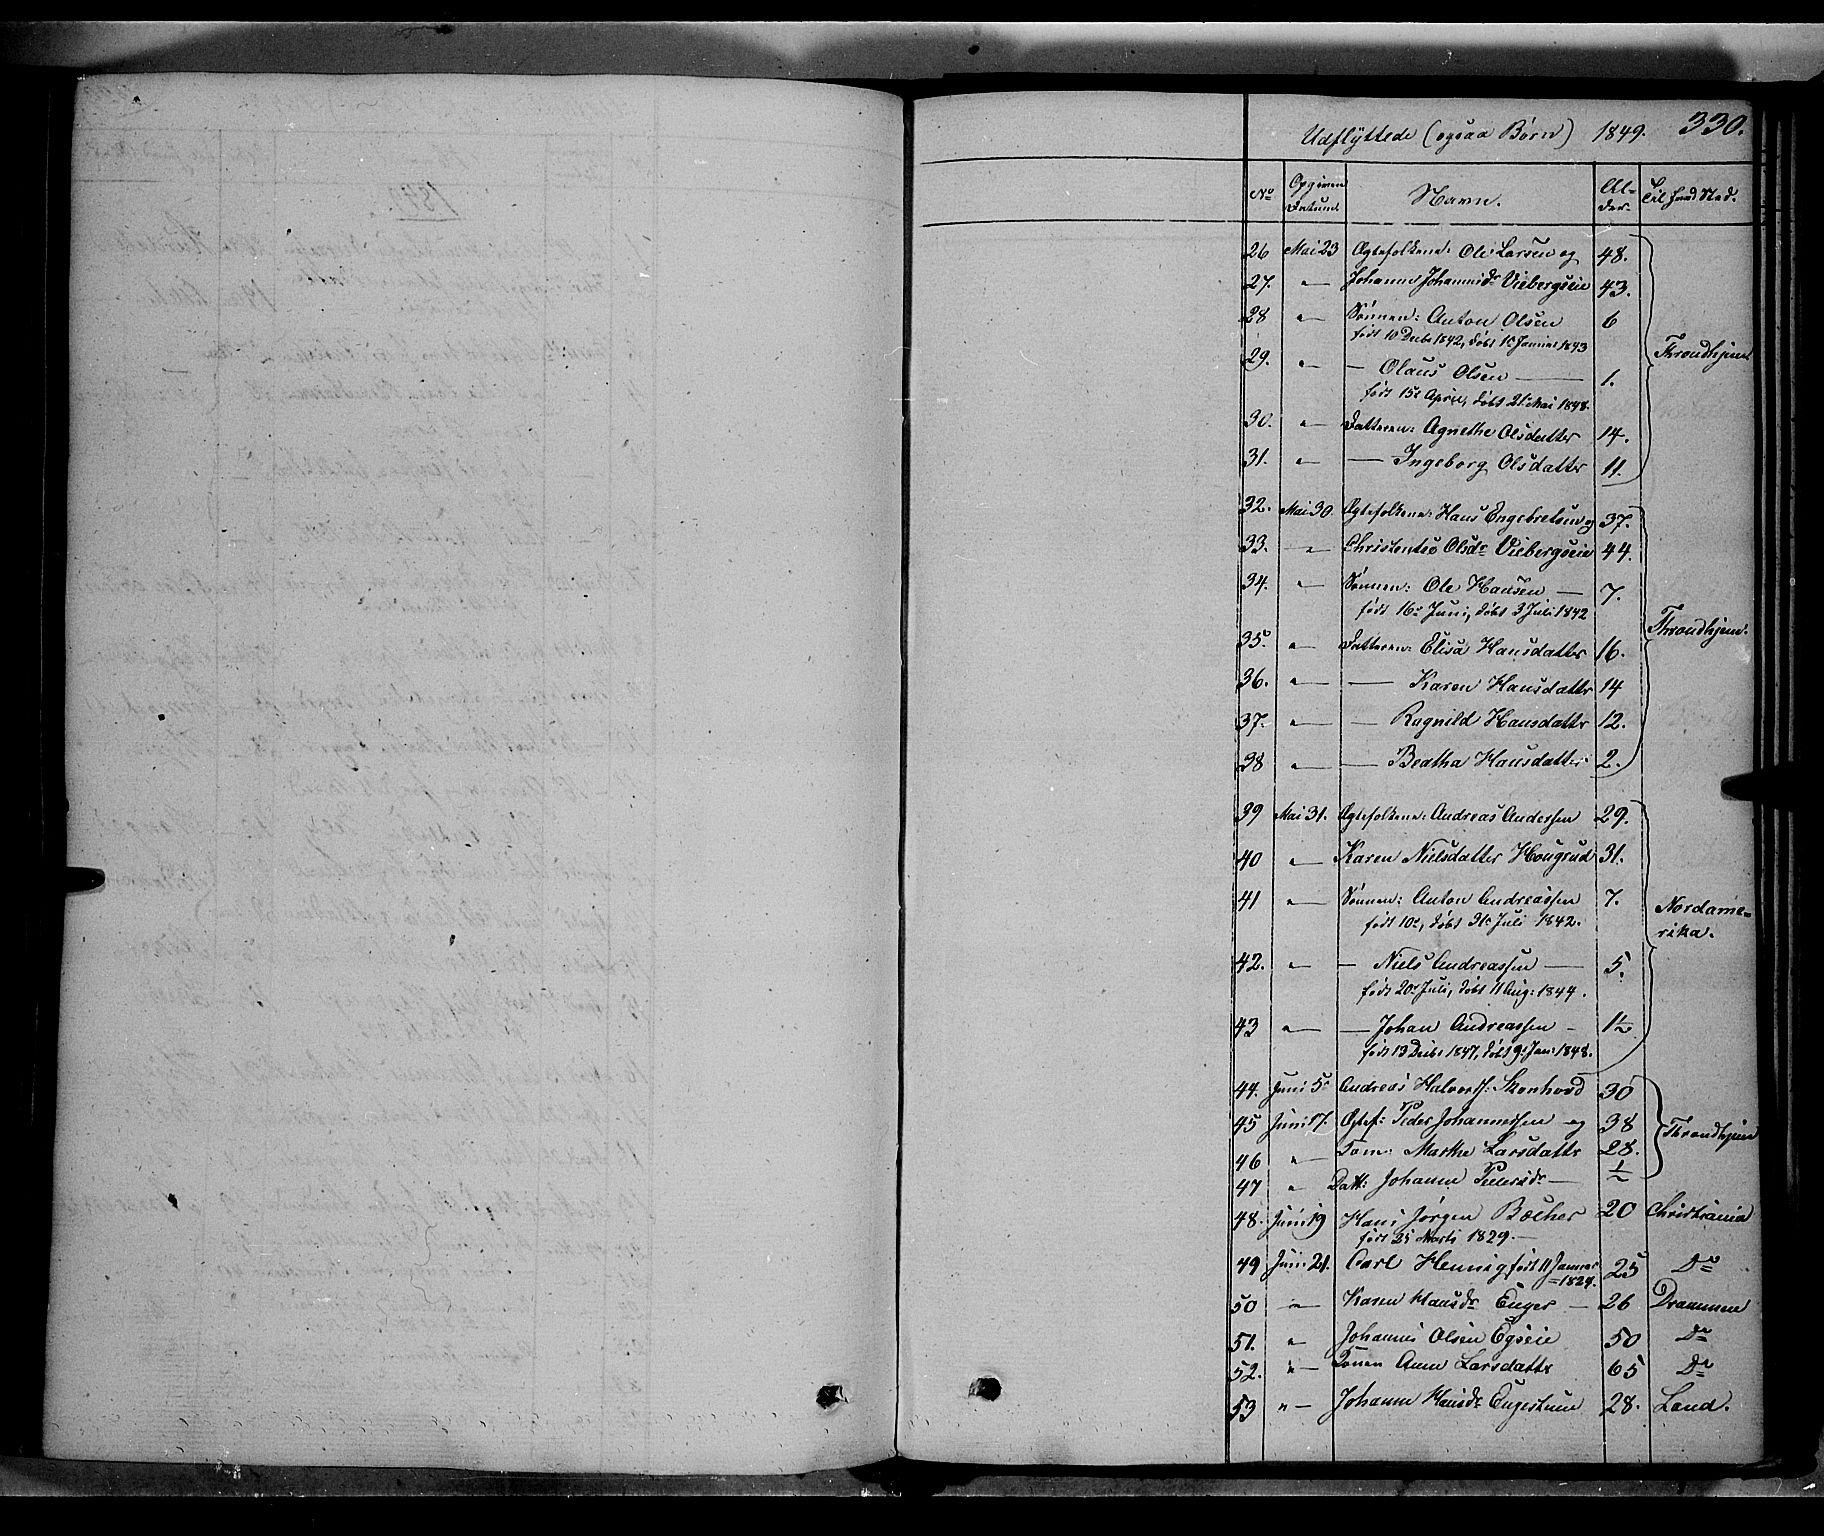 Udflyttede (ogsaa Børn) 1849. 330.
No Opgiven Datum. Navn. Al-der. Til hvad Sted.
26 Mai 23 Ægtefolkene: Ole Larsen og 48.
27. " Johanne Johannisdr Viebergseie 43.
28 " Sønnen: Anton Olsen 6
født 10 Decbr 1842, døbt 1 Januar 1843
Throndhjem
29. " — Olaus Olsen — 1.
født 15 April, døbt 21 Mai 1848.
30. " Datteren: Agnethe Olsdatter 14.
31. " — Ingeborg Olsdatter 11.
32. Mai 30. Ægtefolkene: Hans Engebretsen og 37.
33. " Christentse Olsdr Viebergseie 44.
34. " Sønnen: Ole Hansen — 7.
født 16 Juni, døbt 3 Juli 1842
Throndhjem.
35. " Datteren: Elisa Hansdatter 16.
36. " — Karen Hansdattr 14
37. " — Ragnild Hansdattr 12.
38 " — Beatha Hansdatter 2.
39 Mai 31. Ægtefolkene: Andreas Andersen 29.
40 " Karen Nielsdatter Hougrud 31.
41 " Sønnen: Anton Andreassen 7.
født 10, døbt 31 Juli 1842.
Nordame-
rika.
42. " — Niels Andreassen — 5.
født 20 Juli, døbt 11 Aug: 1844.
43 " — Johan Andreassen - 1½
født 13 Decbr 1847, døbt 9 Jan: 1848.
44. Juni 5 Andreas Halvors: 30
45 Juni 17. Ægtef: Peder Johannessen og 38
Throndhjem
46 " Marthe Larsdattr 28.
47 " Datt: Johanne Pedersdr — ½
48. Juni 19 Hans Jørgen Bæcher 20 Christiania
født 25 Marts 1829. —
49 Juni 21. Carl Hennig født 11 Januar 25 Do
1824.
50 " Karen Hansdr Enger — 26 Drammen
51. " Johannes Olsen Egseie 50 Do
52. " Konen Anne Larsdattr 65 Do
53 " Johanne Hansdr 28. Land.
1849.